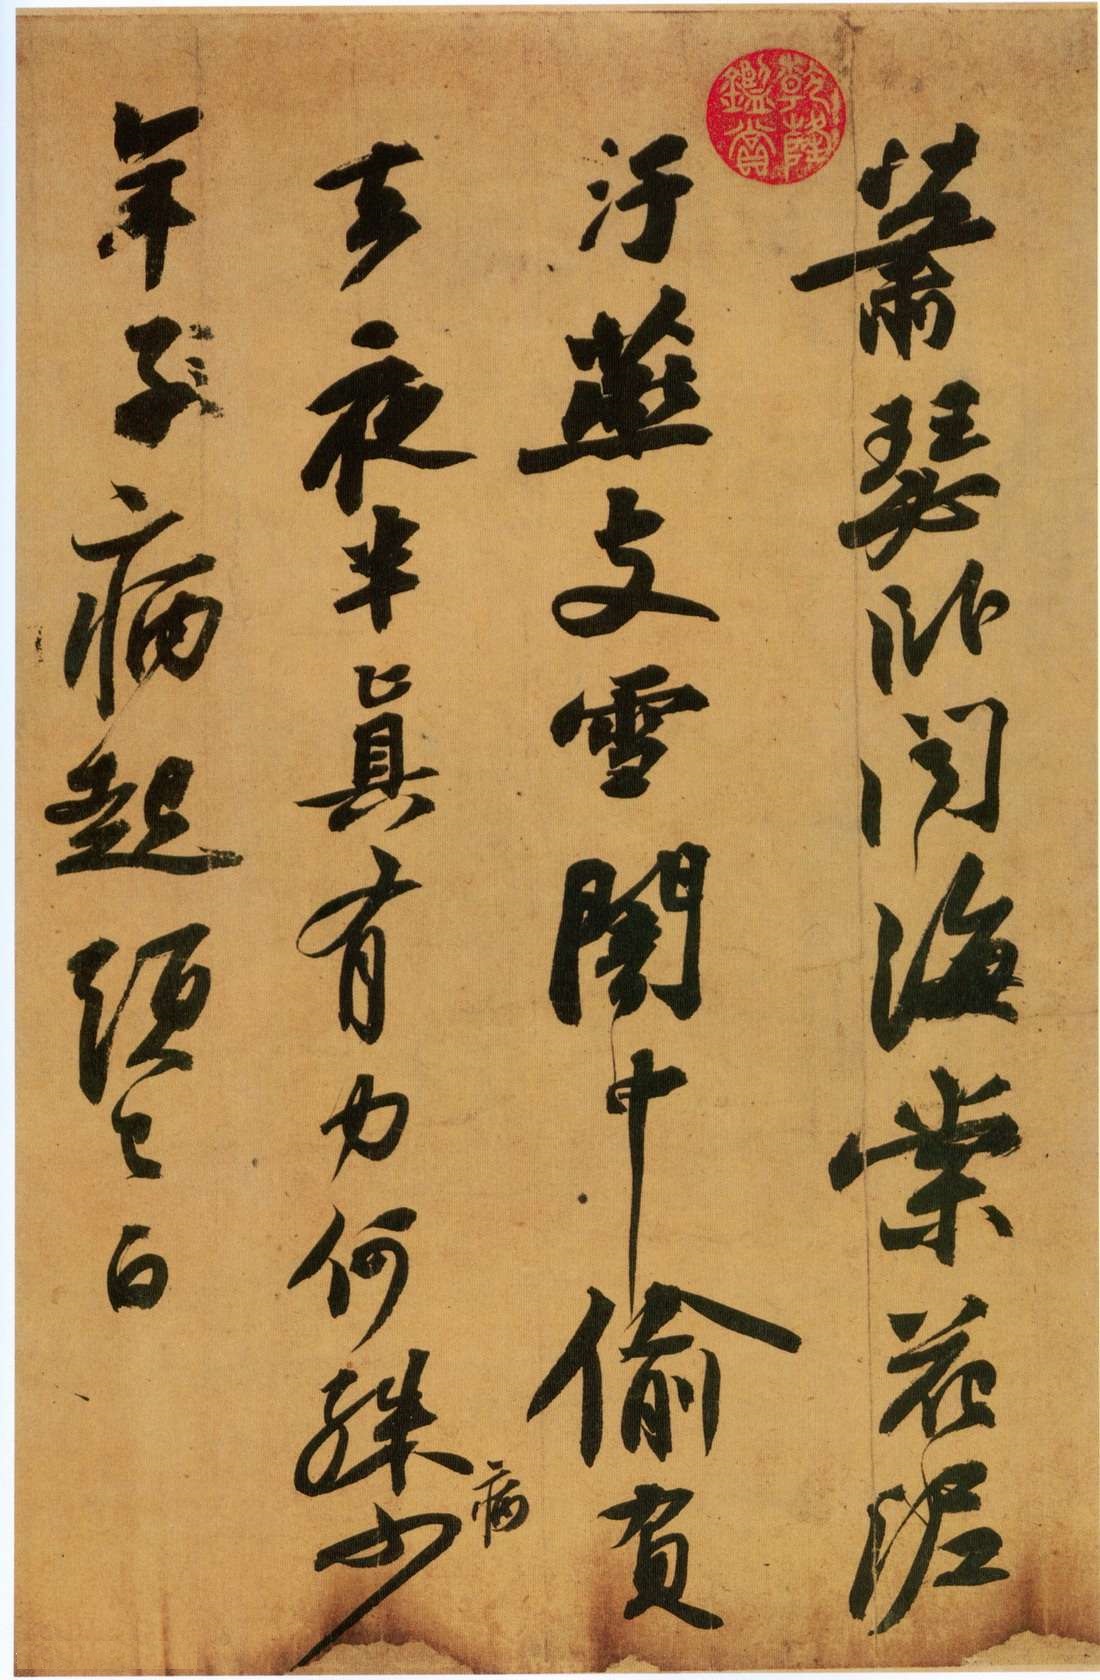 蕭瑟卧聞海棠花泥
汙燕支雪闇中偷負
去夜半真有力何殊少
病
年子病起頭已白
乾隆鑑賞